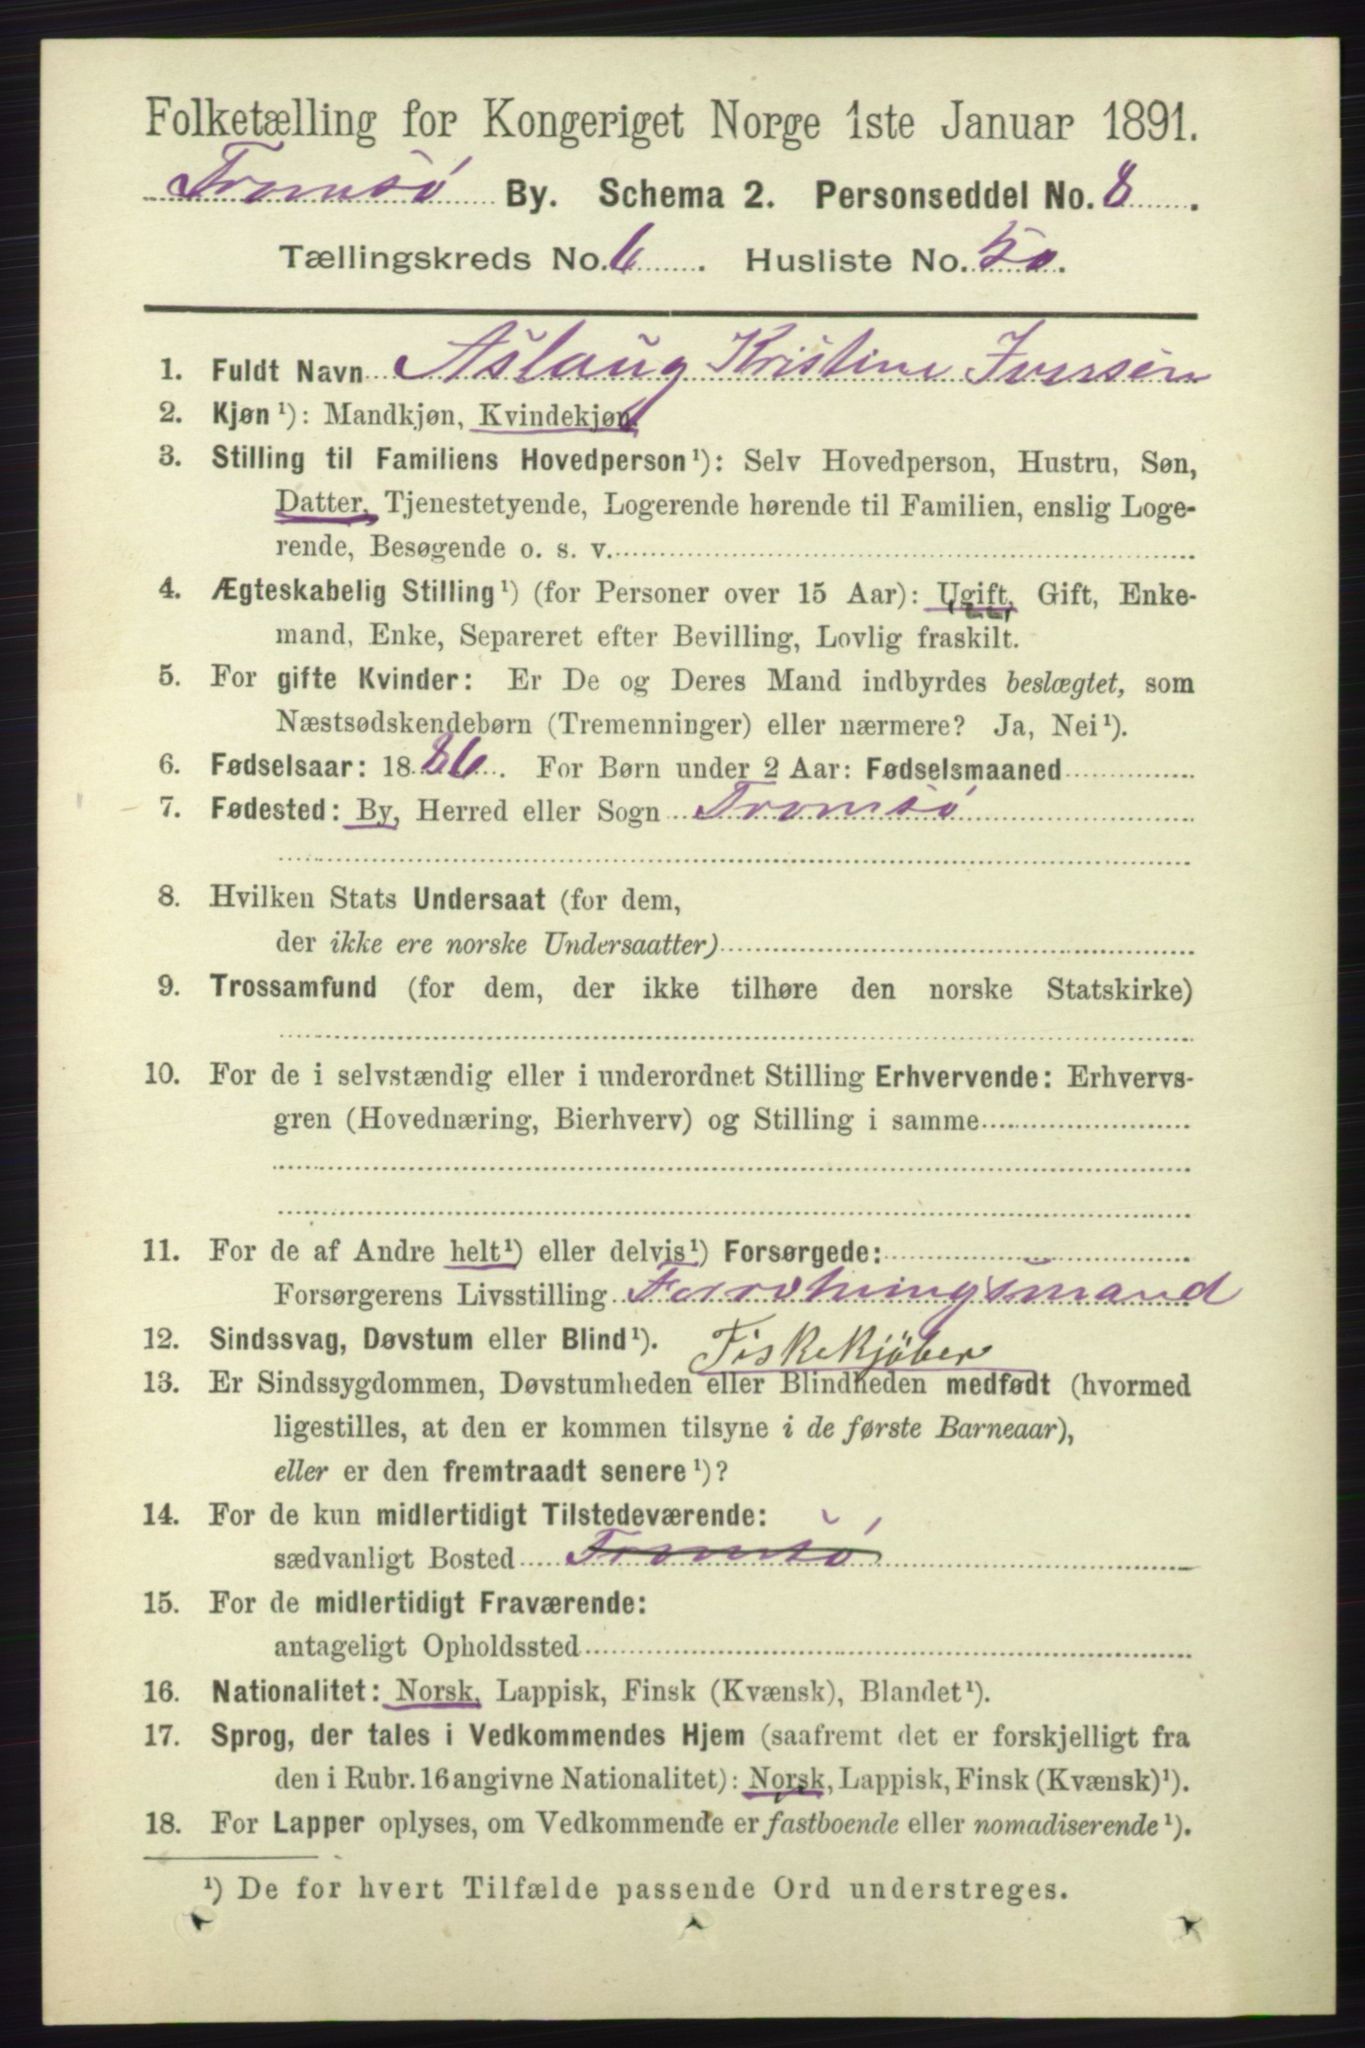 Folketælling for Kongeriget Norge 1ste Januar 1891.
Tromsö By. Schema 2. Personseddel No. 8.
Tællingskreds No. 6. Husliste No. 50.
1. Fuldt Navn Aslaug Kristine Iversen
2. Kjøn¹): Mandkjøn, Kvindekjøn.
3. Stilling til Familiens Hovedperson¹): Selv Hovedperson, Hustru, Søn,
Datter, Tjenestetyende, Logerende hørende til Familien, enslig Loge-
rende, Besøgende o. s. v.
4. Ægteskabelig Stilling¹) (for Personer over 15 Aar): Ugift, Gift, Enke-
mand, Enke, Separeret efter Bevilling, Lovlig fraskilt.
5. For gifte Kvinder: Er De og Deres Mand indbyrdes beslægtet, som
Næstsødskendebørn (Tremenninger) eller nærmere? Ja, Nei¹).
6. Fødselsaar: 1886. For Børn under 2 Aar: Fødselsmaaned
7. Fødested: By, Herred eller Sogn Tromsö
8. Hvilken Stats Undersaat (for dem,
der ikke ere norske Undersaatter)
9. Trossamfund (for dem, der ikke tilhøre den norske Statskirke)
10. For de i selvstændig eller i underordnet Stilling Erhvervende: Erhvervs-
gren (Hovednæring, Bierhverv) og Stilling i samme
11. For de af Andre helt¹) eller delvis¹) Forsørgede:
Forsørgerens Livsstilling Forretningsmand
12. Sindssvag, Døvstum eller Blind¹). Fiskekjöber
13. Er Sindssygdommen, Døvstumheden eller Blindheden medfødt (hvormed
ligestilles, at den er kommen tilsyne i de første Barneaar),
eller er den fremtraadt senere¹)?
14. For de kun midlertidigt Tilstedeværende:
sædvanligt Bosted Tromsö
15. For de midlertidigt Fraværende:
antageligt Opholdssted
16. Nationalitet: Norsk, Lappisk, Finsk (Kvænsk), Blandet¹).
17. Sprog, der tales i Vedkommendes Hjem (saafremt det er forskjelligt fra
den i Rubr. 16 angivne Nationalitet): Norsk, Lappisk, Finsk (Kvænsk)¹).
18. For Lapper oplyses, om Vedkommende er fastboende eller nomadiserende¹).
¹) De for hvert Tilfælde passende Ord understreges.